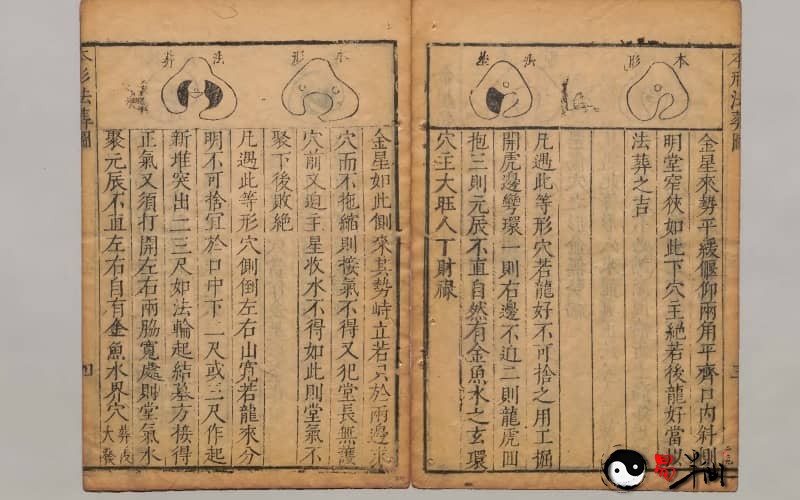 本形法葬圖
三
本形
法葬
金星來勢平緩偃仰兩角平齊口內斜側
明堂窄狹如此下穴主絕若後龍好當以
法葬之吉
凡遇此等形穴若龍好不可捨之用工掘
開虎邊彎環一則右邊不迫二則龍虎回
抱三則元辰不直自然有金魚水之玄環
穴主大旺人丁財祿
本形
法葬
金星如此側來其勢峙立若只於兩邊求
穴而不拖縮則接氣不得又犯堂長無護
穴前又迫主星收水不得如此則堂氣不
聚下後敗絕
凡遇此等形穴側倒左右山寬若龍來分
明不可捨宜於口中下一尺或三尺作起
新堆突出二三尺如法輪起結墓方接得
正氣又須打開左右兩脇寬處則堂氣水
聚元辰不直左右自有金魚水界穴葬後大發
本形法葬圖
四
易